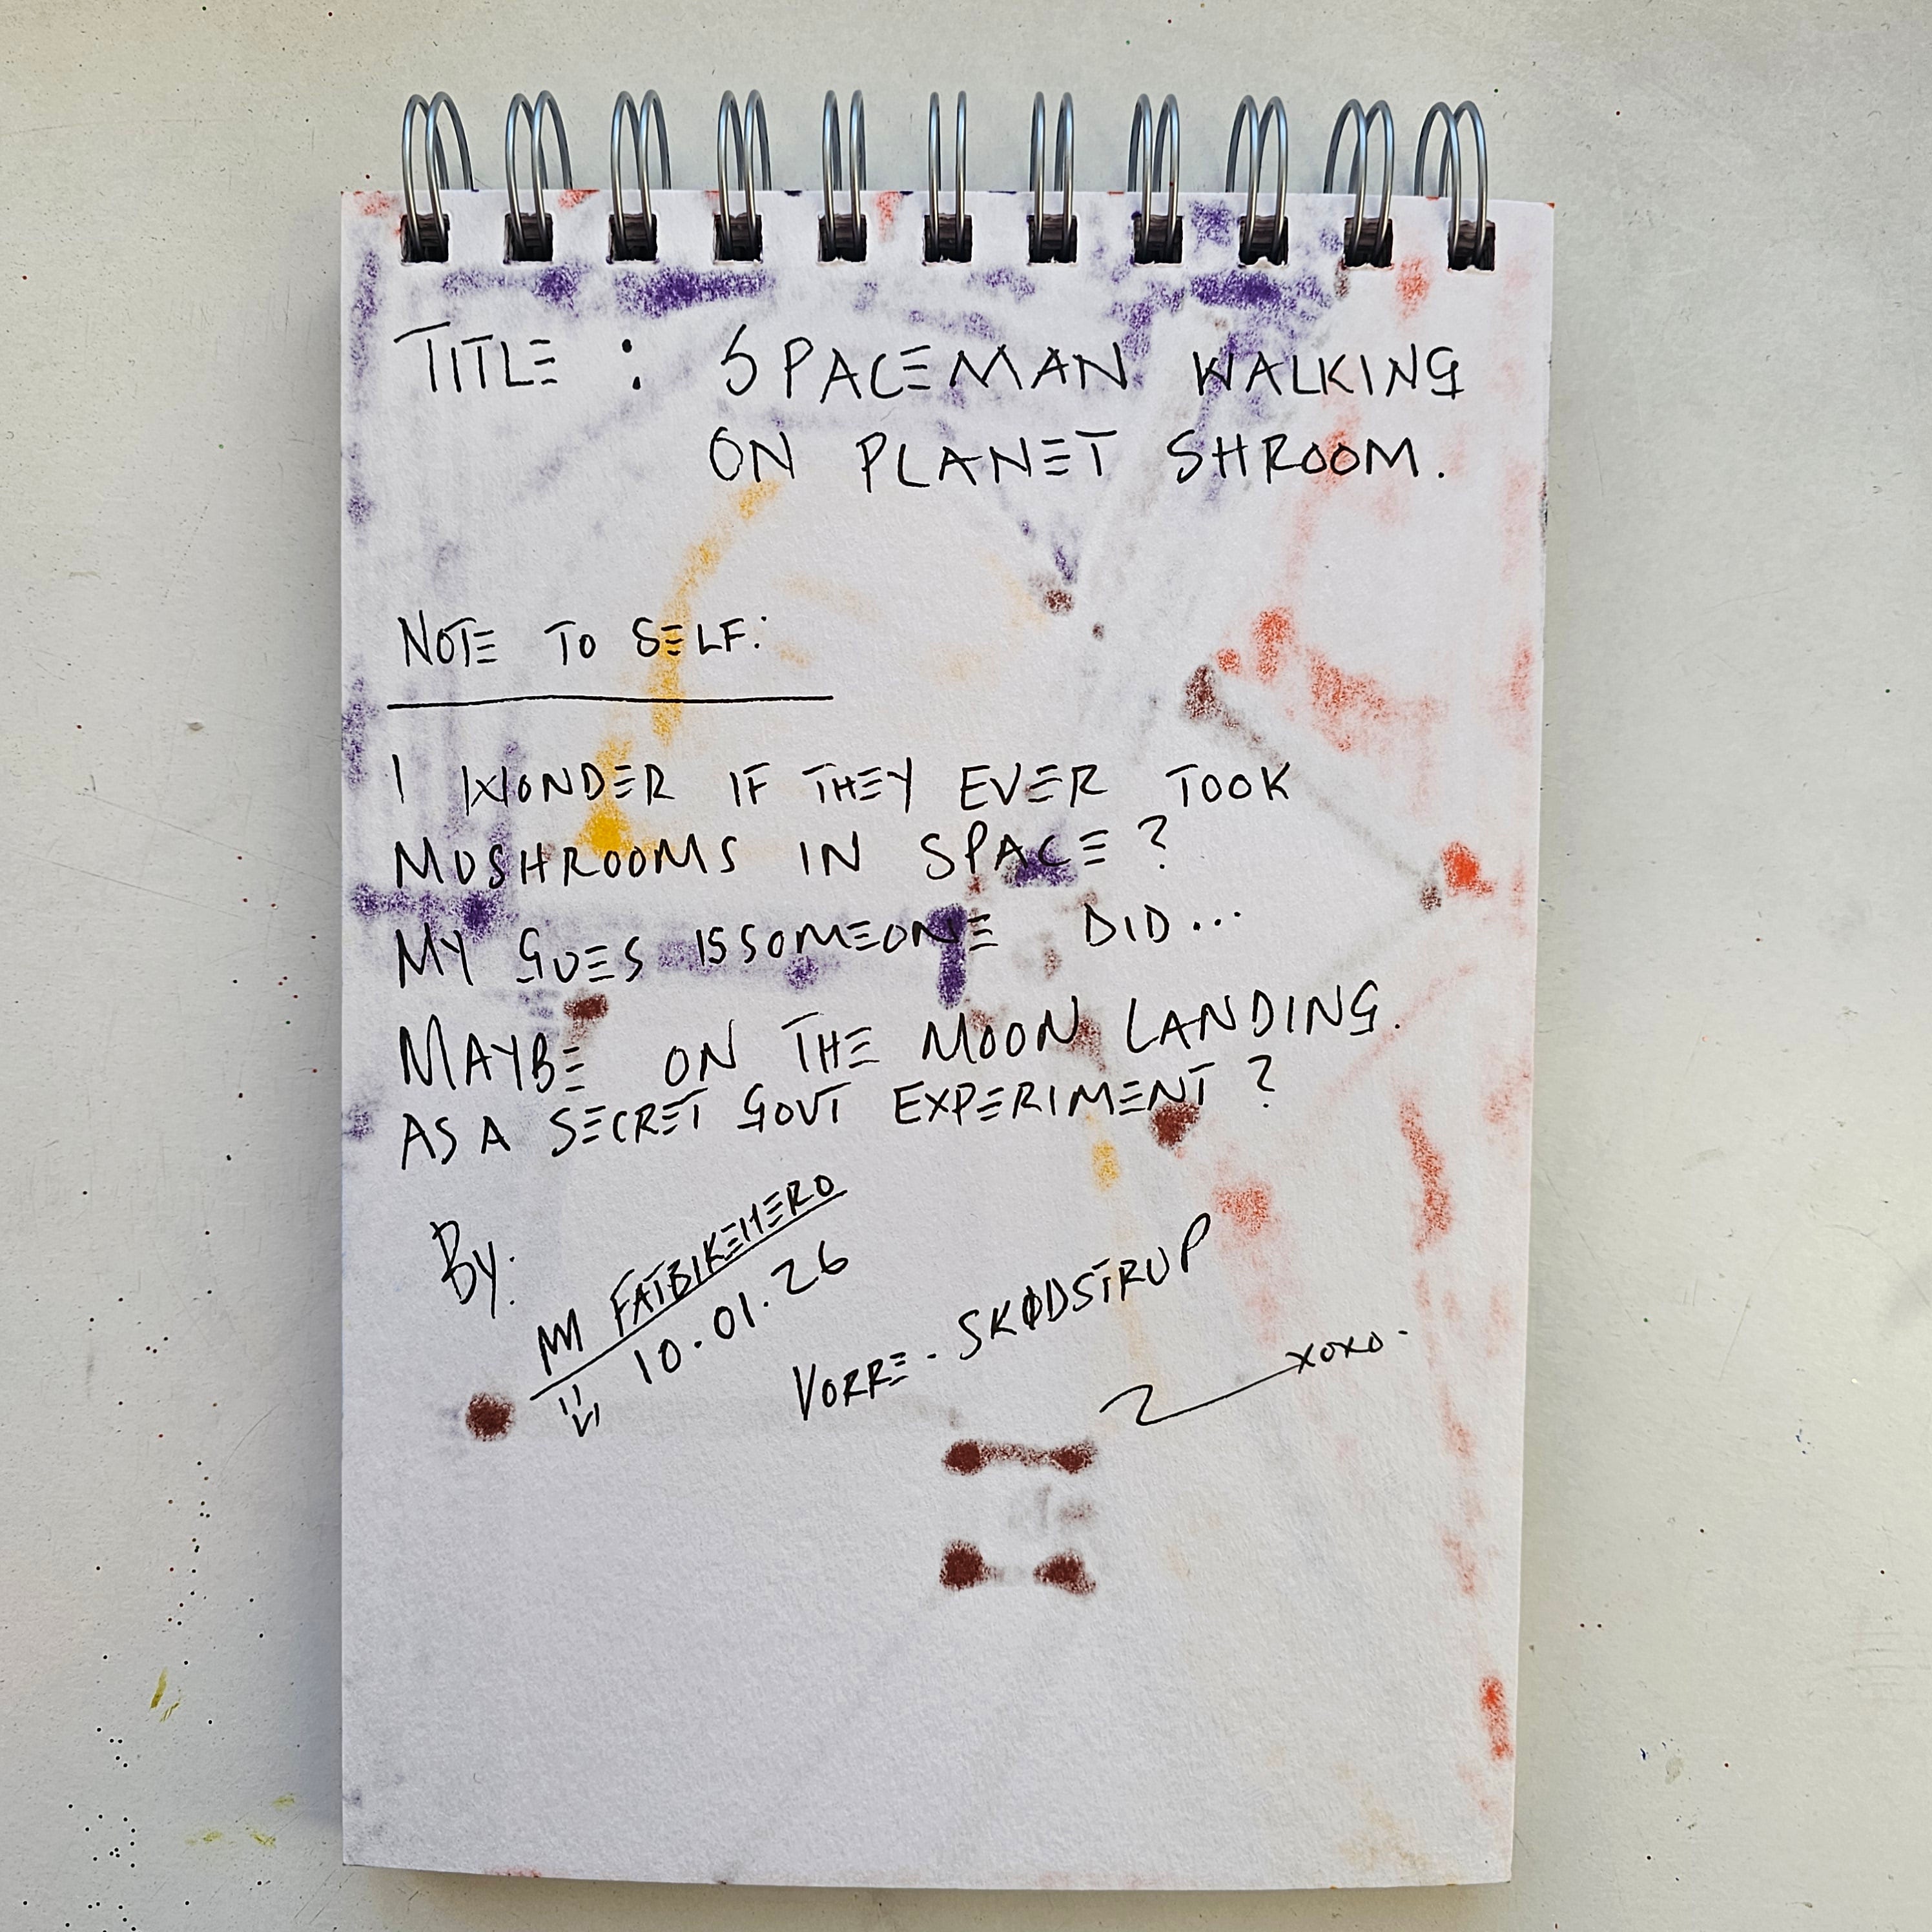 TITLE : SPACEMAN WALKING
ON PLANET SHROOM.
NOTE TO SELF:
I WONDER IF THEY EVER TOOK
MUSHROOMS IN SPACE ?
MY GUES IS SOMEONE DID...
MAYBE ON THE MOON LANDING.
AS A SECRET GOVT EXPERIMENT ?
BY:
M FATBIKEHERO
10.01.26
VORRE - SKØDSTRUP
xoxo.